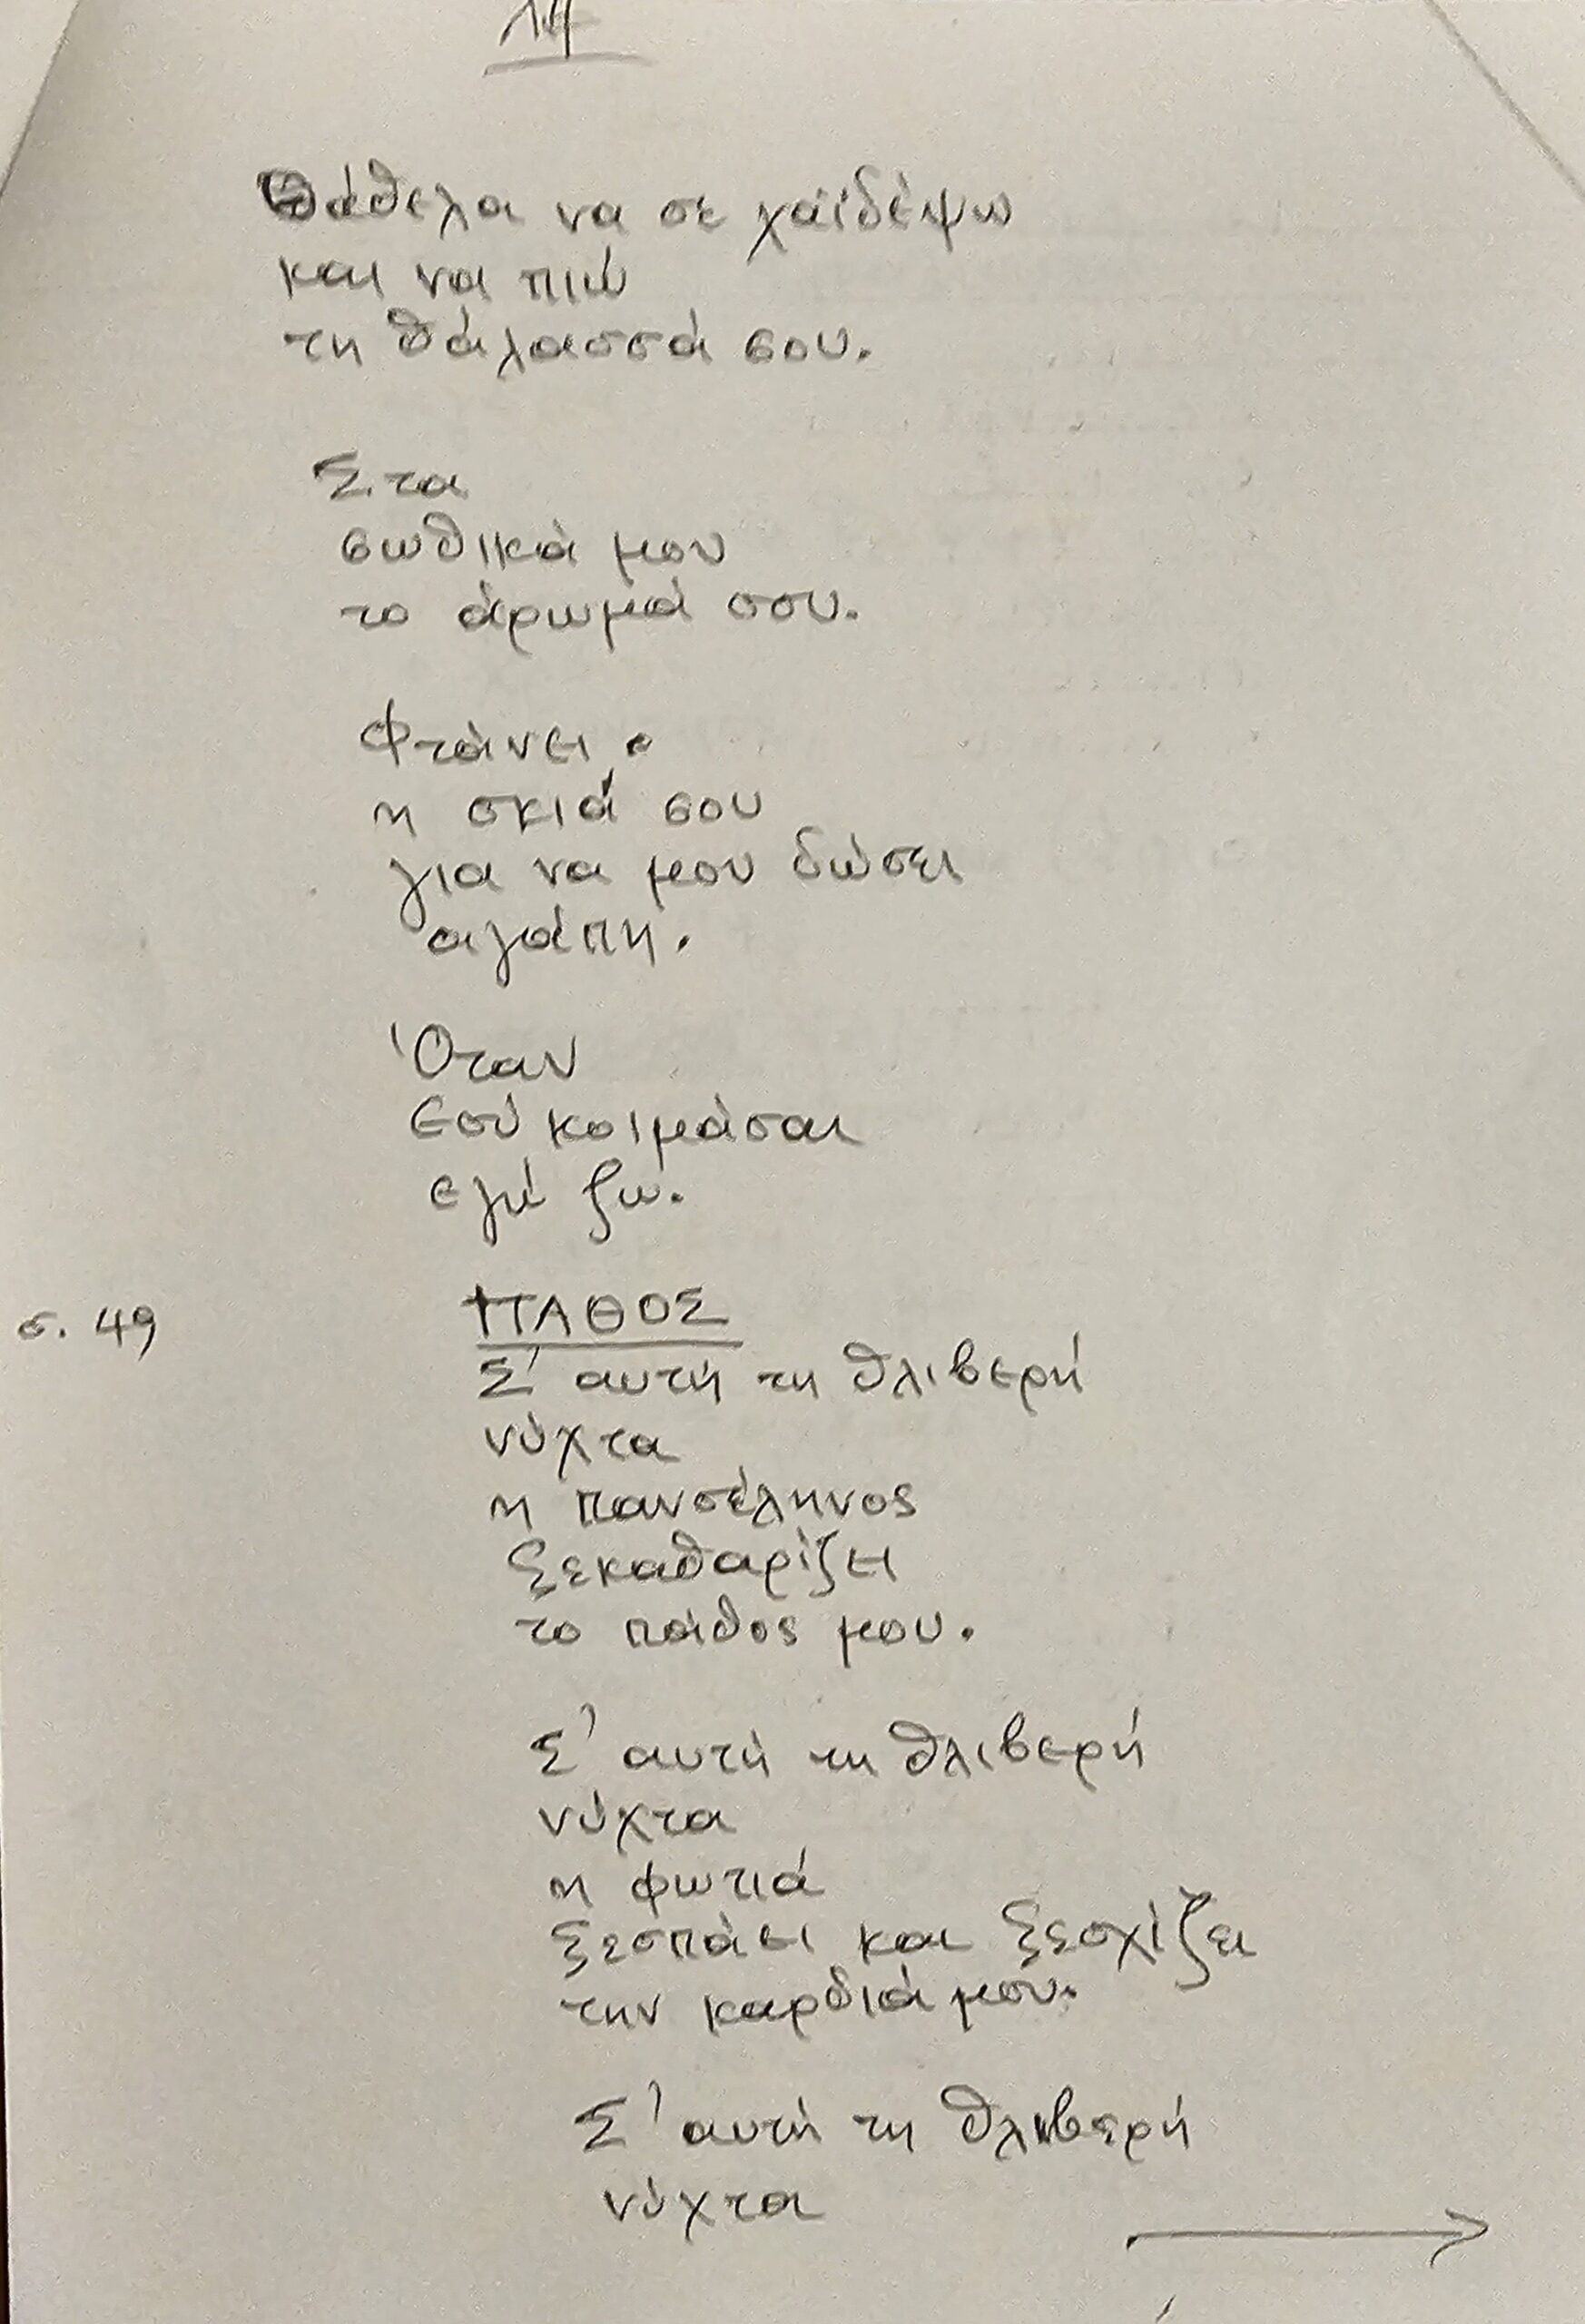 14
Θάθελα να σε χαϊδέψω
και να πιώ
τη θάλασσά σου.
Στα
σωθικά μου
το άρωμά σου.
Φτάνει
η σκιά σου
για να μου δώσει
αγάπη.
Όταν
Εσύ κοιμάσαι
εγώ ζω.
σ. 49
ΠΑΘΟΣ
Σ' αυτή τη θλιβερή
νύχτα
η πανσέληνος
ξεκαθαρίζει
το πάθος μου.
Σ' αυτή τη θλιβερή
νύχτα
η φωτιά
ξεσπάει και ξεσχίζει
την καρδιά μου.
Σ' αυτή τη θλιβερή
νύχτα